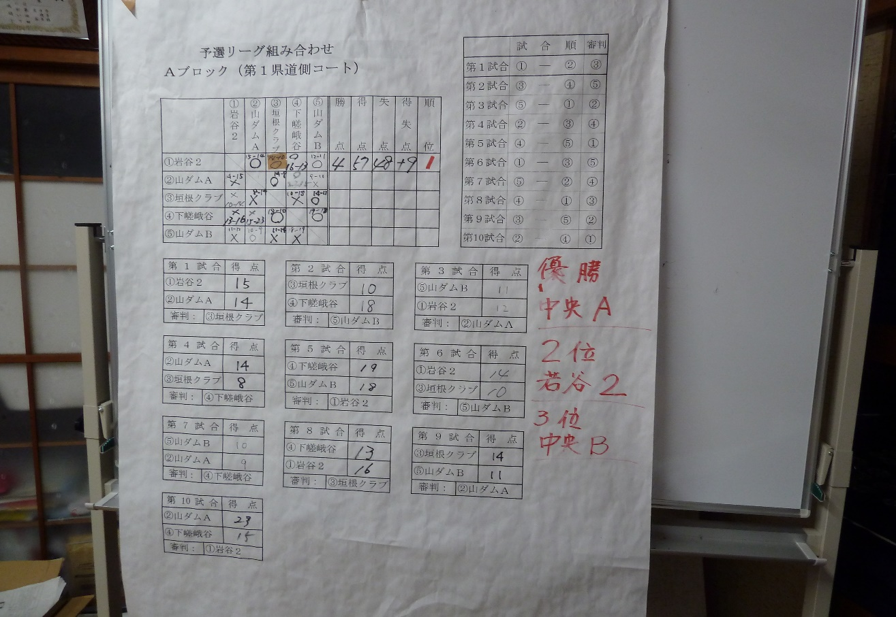 予選リーグ組み合わせ
Aブロック（第１県道側コート）
①岩谷２ ②山ダムA ③垣根クラブ ④下嵯峨谷 ⑤山ダムB 勝点 得点 失点 得失点 順位
①岩谷２ 4 57 48 +9 1
②山ダムA
③垣根クラブ
④下嵯峨谷
⑤山ダムB
試合順 審判
第１試合 ① ― ② ③
第２試合 ③ ― ④ ⑤
第３試合 ⑤ ― ① ②
第４試合 ② ― ③ ④
第５試合 ④ ― ⑤ ①
第６試合 ① ― ③ ⑤
第７試合 ⑤ ― ② ④
第８試合 ④ ― ① ③
第９試合 ③ ⑤ ②
第10試合 ② ― ④ ①
第１試合 得点
①岩谷２ 15
②山ダムA 14
審判： ③垣根クラブ
第２試合 得点
③垣根クラブ 10
④下嵯峨谷 18
審判： ⑤山ダムB
第３試合 得点
⑤山ダムB 11
①岩谷２ 12
審判： ②山ダムA
第４試合 得点
②山ダムA 14
③垣根クラブ 8
審判： ④下嵯峨谷
第５試合 得点
④下嵯峨谷 19
⑤山ダムB 18
審判： ①岩谷２
第６試合 得点
①岩谷２ 14
③垣根クラブ 10
審判： ⑤山ダムB
第７試合 得点
⑤山ダムB 10
②山ダムA 9
審判： ④下嵯峨谷
第８試合 得点
④下嵯峨谷 13
①岩谷２ 16
審判： ③垣根クラブ
第９試合 得点
③垣根クラブ 14
⑤山ダムB 11
審判： ②山ダムA
第10試合 得点
②山ダムA 23
④下嵯峨谷 15
審判： ①岩谷２
優勝
中央A
2位
若谷2
3位
中央B